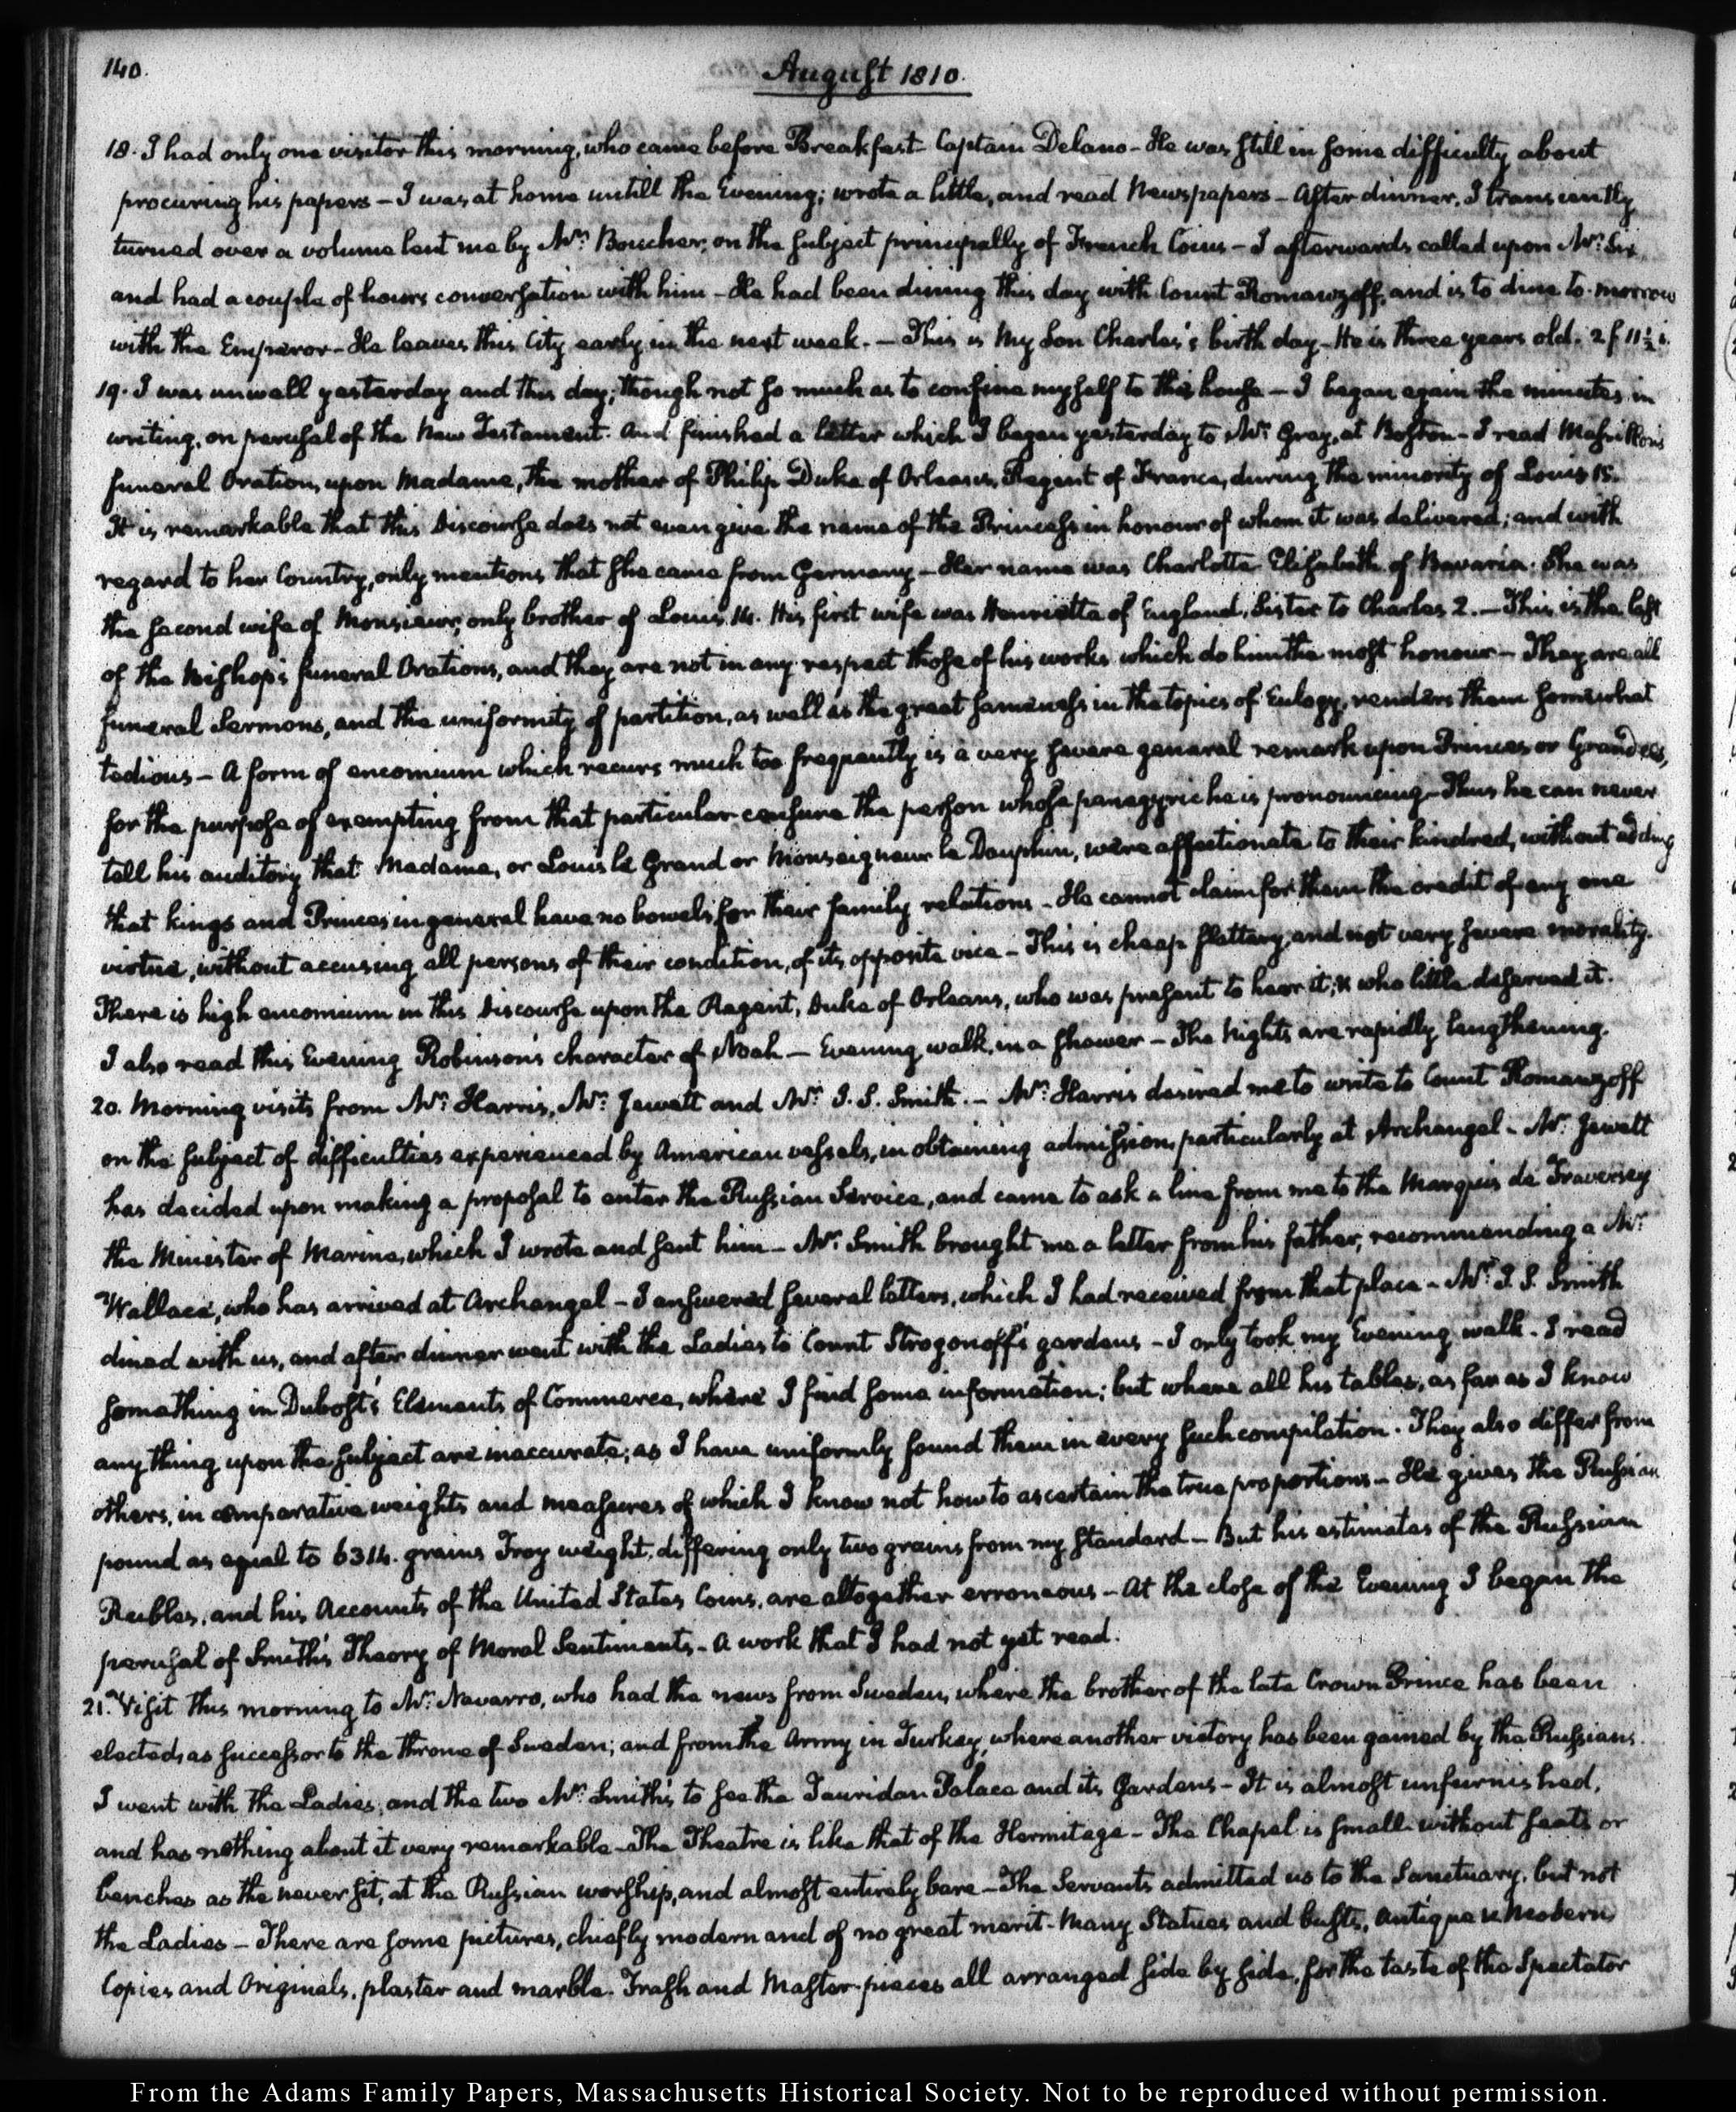 140.
August 1810.
18. I had only one visitor this morning, who came before Breakfast. Captain Delano - He was still in some difficulty about
procuring his papers - I was at home untill the Evening; wrote a little, and read Newspapers - After dinner, I transiently
turned over a volume lent me by Mr: Boucher, on the subject principally of French Coins - I afterwards called upon Mr: Six
and had a couple of hours conversation with him - He had been dining this day with Count Romanzoff, and is to dine to-morrow
with the Emperor - He leaves this City early in the next week. - This is my Son Charles's birth day - He is three years old. 2 f 11½ i.
19. I was unwell yesterday and this day; though not so much as to confine myself to the house - I began again the minutes in
writing, on perusal of the New Testament. And finished a letter which I began yesterday to Mr: Gray, at Boston - I read Massillon's
funeral Oration, upon Madame, the mother of Philip Duke of Orleans, Regent of France, during the minority of Louis 15.
It is remarkable that this Discourse does not even give the name of the Princess in honour of whom it was delivered; and with
regard to her Country, only mentions that she came from Germany - Her name was Charlotte Elisabeth of Bavaria. She was
the second wife of Monsieur, only brother of Louis 14. His first wife was Henrietta of England, Sister to Charles 2. - This is the last
of the Bishop's funeral Orations, and they are not in any respect those of his works which do him the most honour - They are all
funeral Sermons, and the uniformity of partition, as well as the great sameness in the topics of Eulogy, renders them somewhat
tedious - A form of encomium which recurs much too frequently is a very severe general remark upon Princes or Grandees,
for the purpose of exempting from that particular censure the person whose panegyric he is pronouncing - Thus he can never
tell his auditory that Madame, or Louis le Grand or Monseigneur le Dauphin, were affectionate to their kindred, without adding
that kings and Princes in general have no bowels for their family relations - He cannot claim for them the credit of any one
virtue, without accusing all persons of their condition, of its opposite vice - This is cheap flattery, and not very severe morality.
There is high encomium in this Discourse upon the Regent, Duke of Orleans, who was present to hear it; & who little deserved it.
I also read this Evening Robinson's character of Noah - Evening walk, in a shower - The Nights are rapidly lengthening.
20. Morning visits from Mr: Harris, Mr: Jewett and Mr: J. S. Smith. - Mr: Harris desired me to write to Count Romanzoff
on the subject of difficulties experienced by American vessels, in obtaining admission, particularly at Archangel - Mr: Jewett
has decided upon making a proposal to enter the Russian Service, and came to ask a line from me to the Marquis de Traversey
the Minister of Marine, which I wrote and sent him - Mr: Smith brought me a letter from his father, recommending a Mr:
Wallace, who has arrived at Archangel - I answered several letters, which I had received from that place - Mr: J. S. Smith
dined with us, and after dinner went with the Ladies to Count Strogonoff's gardens - I only took my Evening walk. I read
something in Dubost's Elements of Commerce, where I find some information; but where all his tables, as far as I know
any thing upon the subject are inaccurate; as I have uniformly found them in every such compilation. They also differ from
others, in comparative weights and measures of which I know not how to ascertain the true proportions - He gives the Russian
pound as equal to 6314. grains Troy weight, differing only two grains from my Standard - But his estimates of the Russian
Roubles, and his Accounts of the United States Coins, are altogether erroneous - At the close of the Evening I began the
perusal of Smith's Theory of Moral Sentiments - A work that I had not yet read.
21. Visit this morning to Mr: Navarro, who had the news from Sweden, where the brother of the late Crown Prince has been
elected, as successor to the throne of Sweden; and from the Army in Turkey, where another victory has been gained by the Russians.
I went with the Ladies, and the two Mr: Smith's to see the Tauridan Palace and its Gardens - It is almost unfurnished,
and has nothing about it very remarkable - The Theatre is like that of the Hermitage - The Chapel is small without seats or
benches as the never sit, at the Russian worship, and almost entirely bare - The Servants admitted us to the Sanctuary, but not
the Ladies - There are some pictures, chiefly modern and of no great merit. Many Statues and busts, Antique & Modern,
Copies and Originals, plaster and marble. Trash and Master-pieces all arranged side by side, for the taste of the Spectator
From the Adams Family Papers, Massachusetts Historical Society. Not to be reproduced without permission.